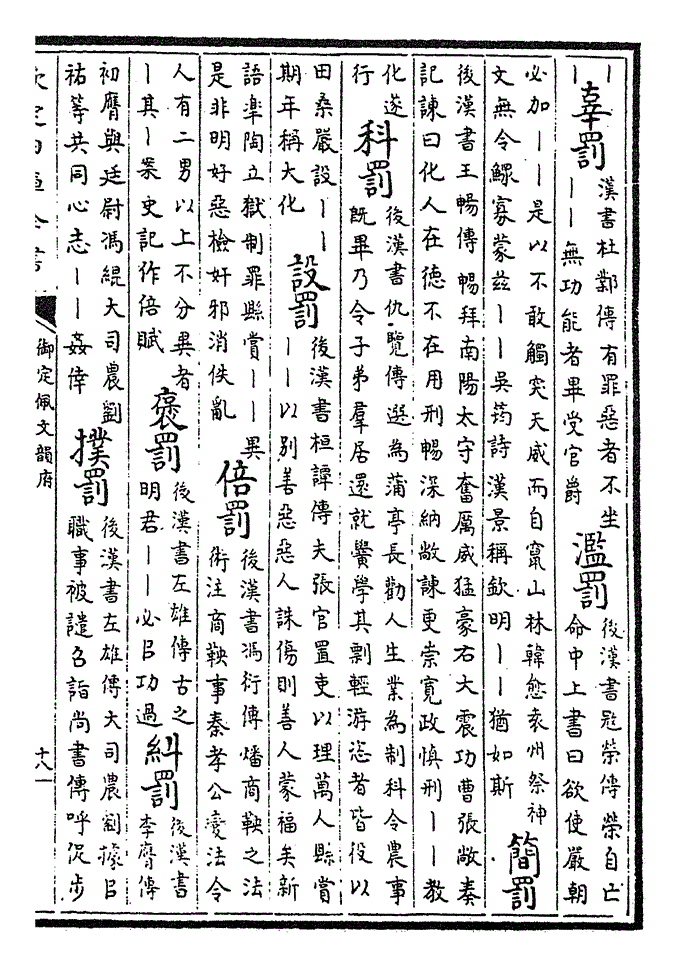 丨
丨
辜罰
漢書杜鄴傳有罪惡者不坐
丨丨無功能者畢受官爵
濫罰
後漢書寇榮傳榮自亡
命中上書曰欲使嚴朝
必加丨丨是以不敢觸突天威而自竄山林韓愈袁州祭神
文無令鰥寡蒙兹丨丨吳筠詩漢景稱欽明丨丨猶如斯
簡罰
後漢書王暢傳暢拜南陽太守奮厲威猛豪右大震功曹張敞奏
記諫曰化人在德不在用刑暢深納敞諫更崇寬政慎刑丨丨教
化遂
行
科罰
後漢書仇覽傳選為蒲亭長勸人生業為制科令農事
既畢乃令子弟羣居還就黌學其剽輕游恣者皆役以
田桑嚴設丨丨
期年稱大化
設罰
後漢書桓譚傳夫張官置吏以理萬人縣賞
丨丨以别善惡惡人誅傷則善人蒙福矣新
語皋陶立獄制罪縣賞丨丨異
是非明好惡檢奸邪消佚亂
倍罰
後漢書馮衍傳燔商鞅之法
術注商鞅事秦孝公變法令
人有二男以上不分異者
丨其丨案史記作倍賦
褒罰
後漢書左雄傳古之
明君丨丨必㠯功過
糾罰
後漢書
李膺傳
初膺與廷尉馮緄大司農劉
祐等共同心志丨丨姦倖
撲罰
後漢書左雄傳大司農劉據㠯
職事被譴召詣尚書傳呼促步
欽定四庫全書
御定佩文韻府
十八